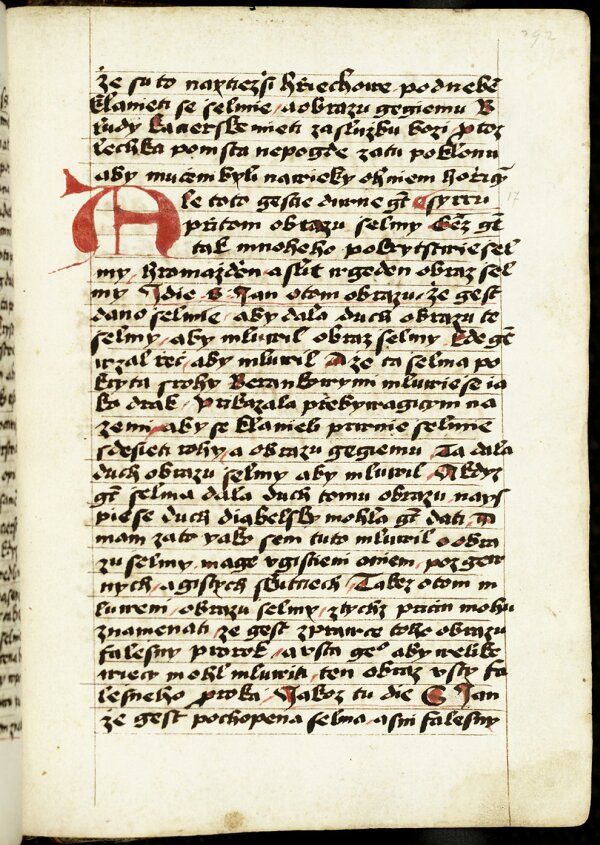 292
že su to naytiežši hřiechowe podnebē
klanieti se selmie, a obrazu gegiemu B
ludy kacierske mieti za služku bozi, proz
lechka pomsta nepogde za tu poklonu
aby mucem byli na wieky ohniem horzicy
Ale toto gestie durne gt Esyrru
17
při tom obrazu selmy Eēz gt
tak mnoheho pokrytstwie sel
my, hromažden a slit w geden obraz sel
my Jdie S Jan o tom obrazu, že gest
dano selmie, aby dala duch obrazu te
selmy, aby mluwil obraz selmy Kde gt
wzal řeč, aby mluwil A že ta selma po
kryta s rohy Berankowymi mluwie se ia
ko drak, Prikazala přebywagicym na
zemi, aby se klanieli prwnie selmie
s desieti rohy, a obrazu gegiemu Ta dala
duch obrazu selmy aby mluwil A kdyz
gt selma dala duch tomu obrazu, nays
piese duch diabelsky mohla gt dati, A
mam za to yako sem tuto mluwil o obra
zu selmy, mage ugistieni o niem, poz gew
nych, a gistych skutciech Takez o tom m
luwem, obrazu selmy, z tychz přičin mohu
znamenati, že gest zprawce toho obrazu
falesny prorok, a usta geo aby welike
wiecy mohl mluwiti, ten obraz usty fa
lesneho proka, Yakoz tu die S Jan
že gest pochopena selma, a s ni falesny